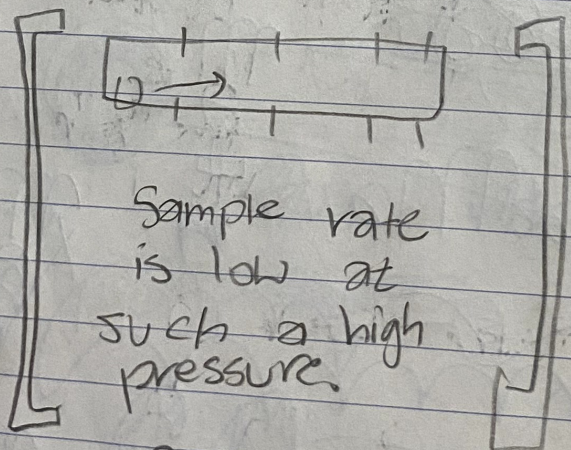 Sample rate
is low at
such a high
pressure.